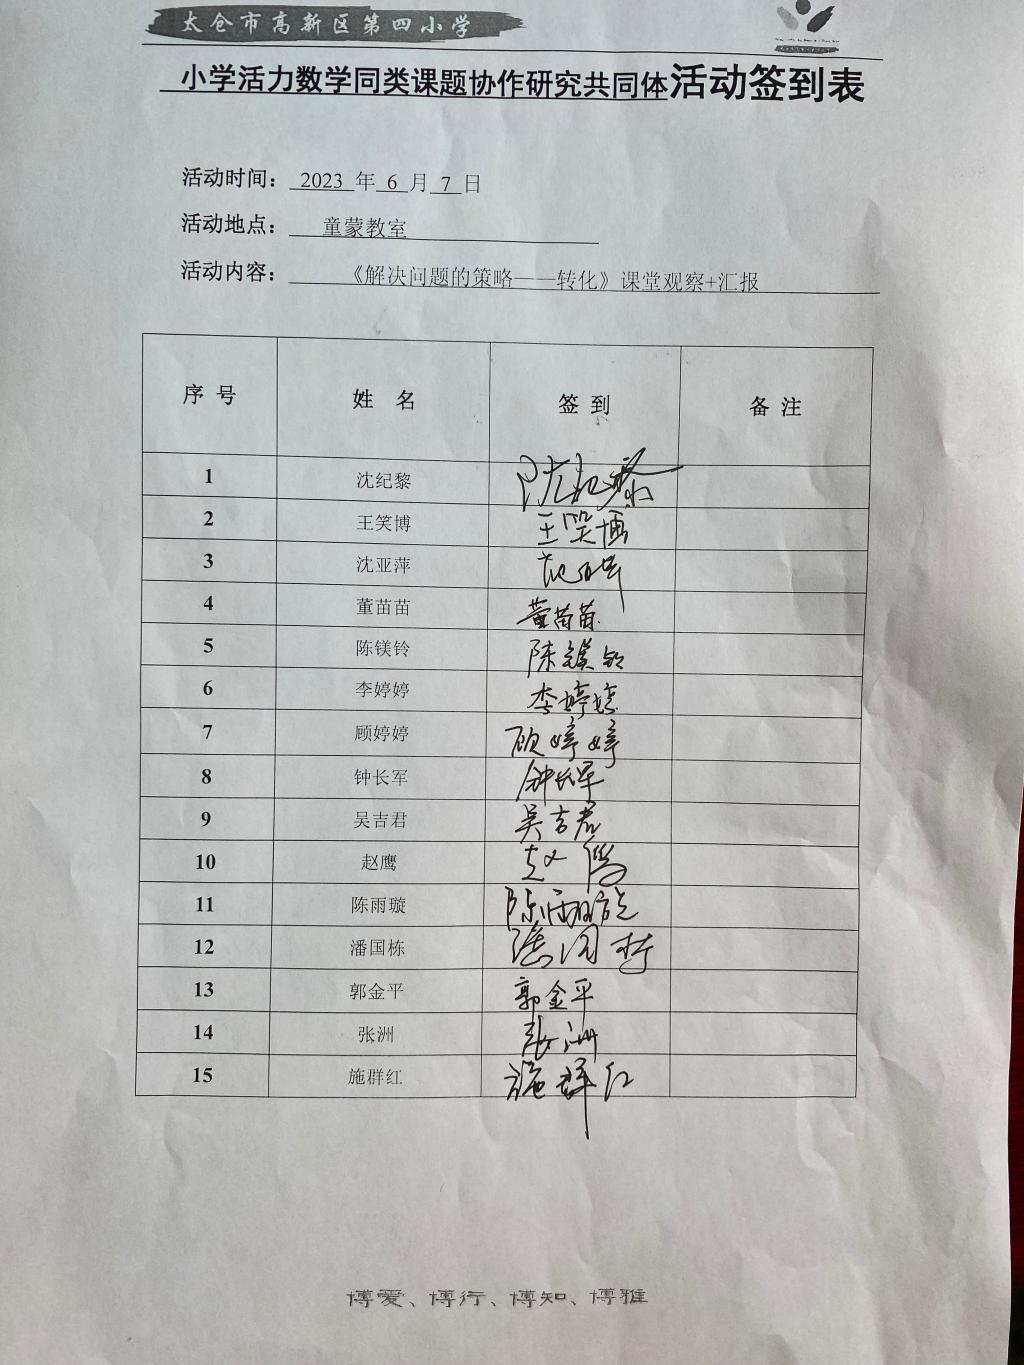 太仓市高新区第四小学
小学活力数学同类课题协作研究共同体活动签到表
活动时间： 2023 年 6 月 7 日
活动地点： 童蒙教室
活动内容： 《解决问题的策略——转化》课堂观察+汇报
序 号 姓 名 签 到 备 注
1 沈纪黎 沈纪黎
2 王笑博 王笑博
3 沈亚萍 沈亚萍
4 董苗苗 董苗苗
5 陈镁铃 陈镁铃
6 李婷婷 李婷婷
7 顾婷婷 顾婷婷
8 钟长军 钟长军
9 吴吉君 吴吉君
10 赵鹰 赵鹰
11 陈雨璇 陈雨璇
12 潘国栋 潘国栋
13 郭金平 郭金平
14 张洲 张洲
15 施群红 施群红
博爱、博行、博知、博雅